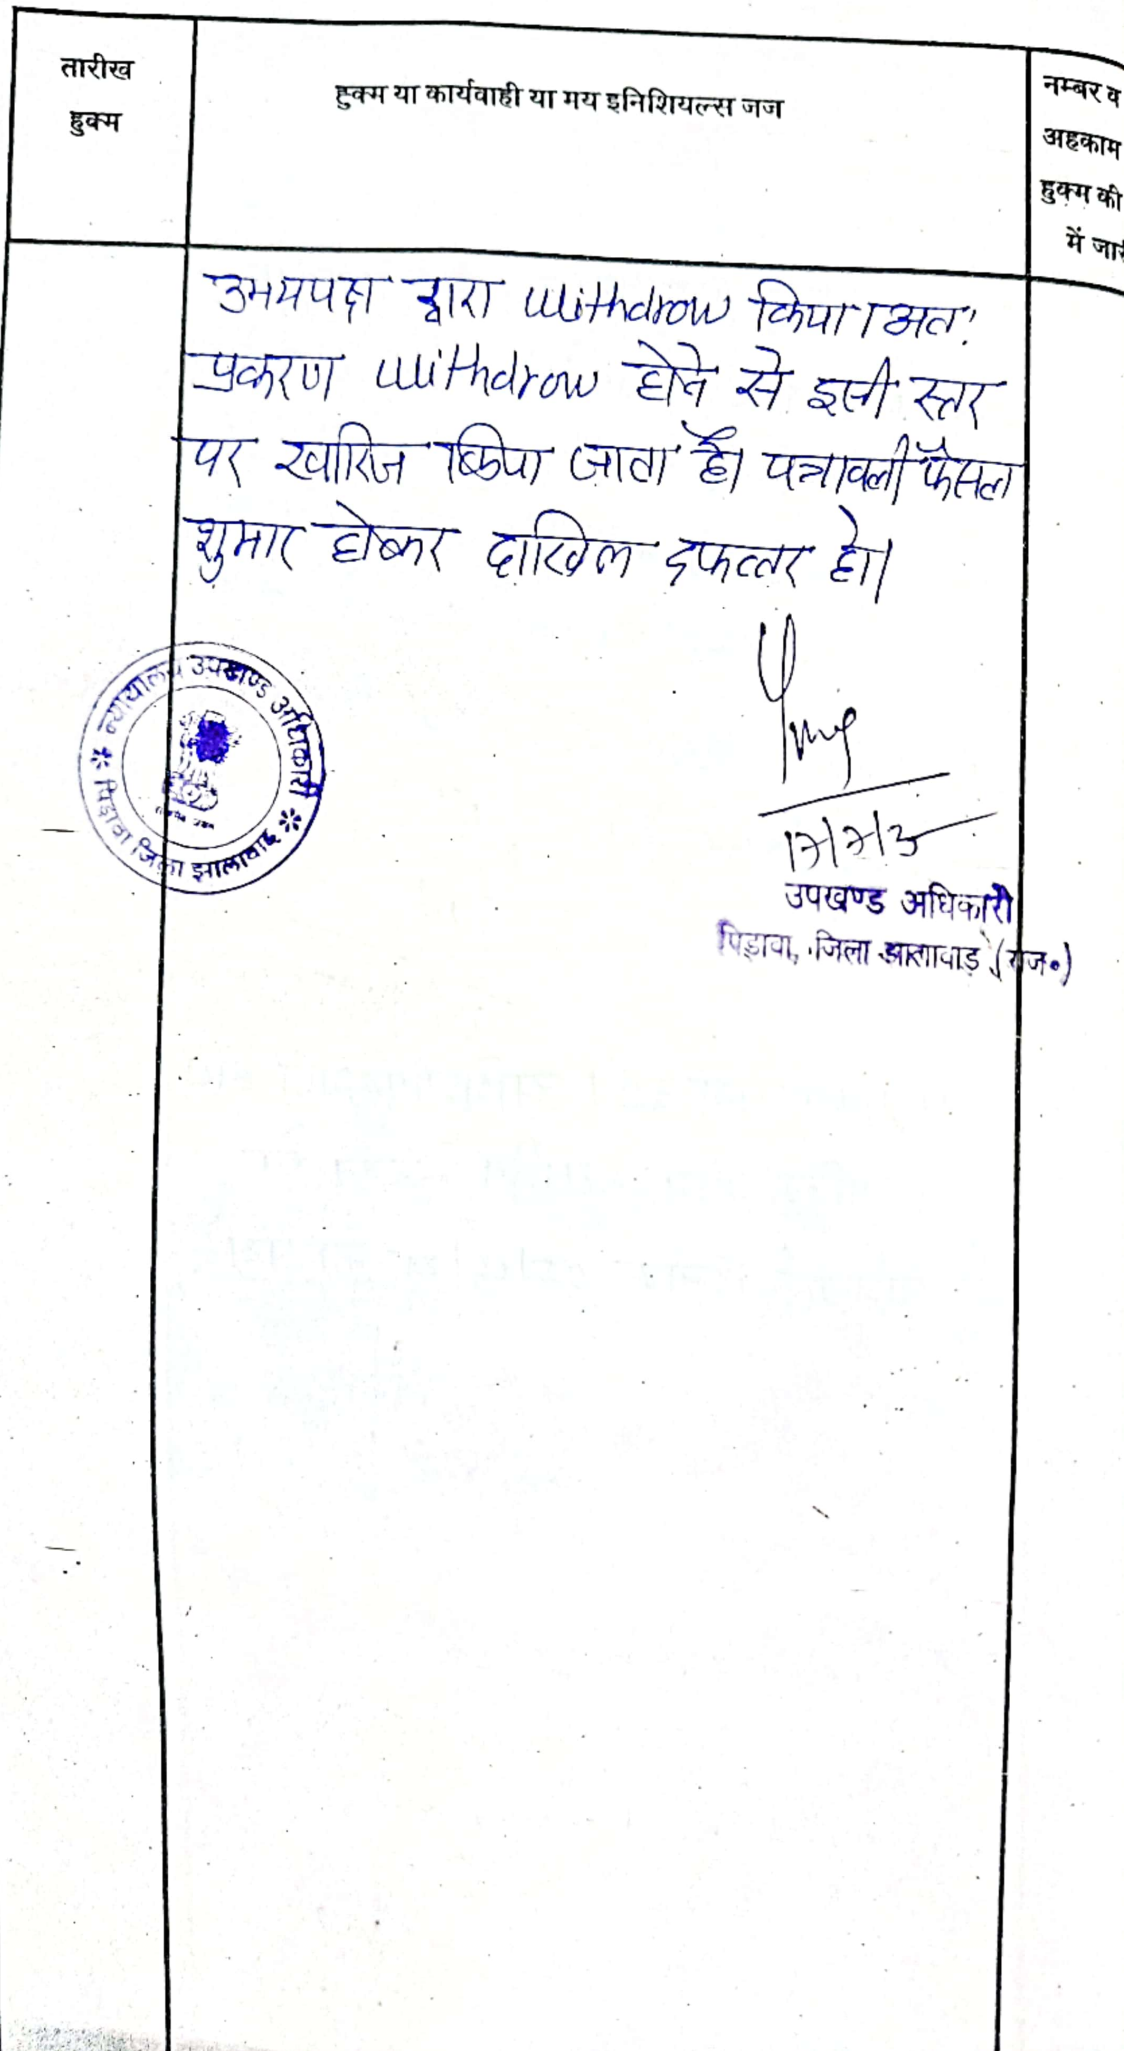 तारीख
हुक्म
हुक्म या कार्यवाही या मय इनिशियल्स जज
नम्बर व
अहकाम
हुक्म की
में जारी
उभयपक्ष द्वारा withdrow किया। अतः
प्रकरण withdrow होने से इसी स्तर
पर खारिज किया जाता है। पत्रावली फैसल
शुमार होकर दाखिल दफ्तर हो।
न्यायालय उपखण्ड अधिकारी
पिड़ावा जिला झालावाड़
उपखण्ड अधिकारी
पिड़ावा, जिला झालावाड़ (राज०)